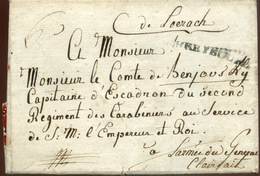 de Loerach
A Monsieur
Monsieur le Comte de Benjousky
Capitaine d'Escadron du second
Regiment des Carabiniers au Service
de S. M. l'Empereur et Roi.
à l'armée du General
Clairfait